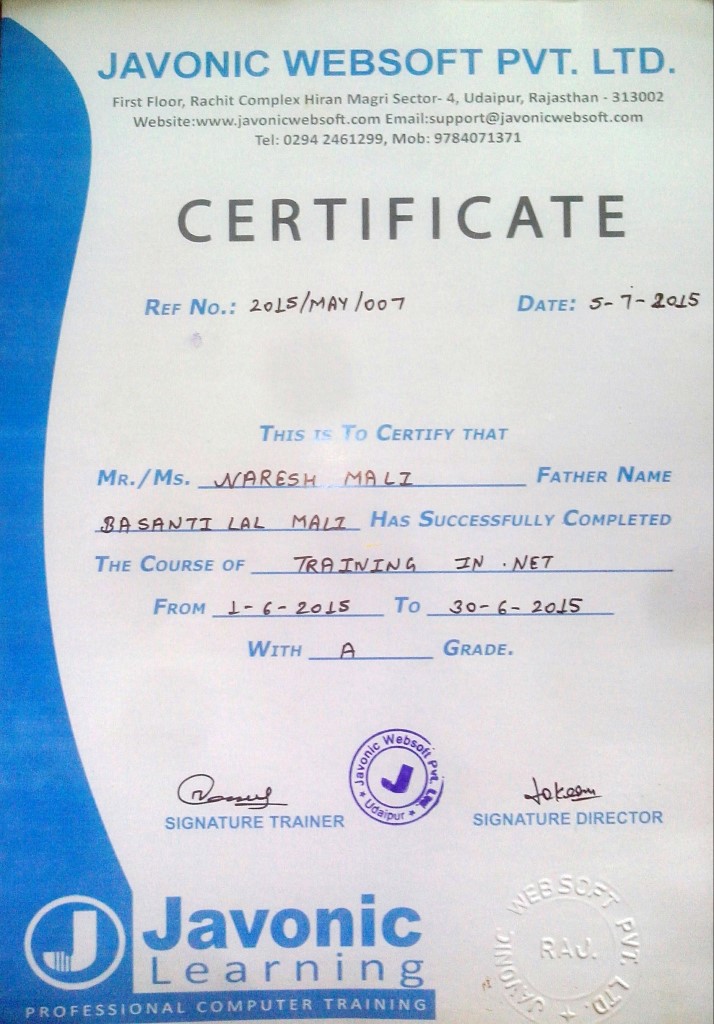 JAVONIC WEBSOFT PVT. LTD.
First Floor, Rachit Complex Hiran Magri Sector- 4, Udaipur, Rajasthan - 313002
Website:www.javonicwebsoft.com Email:support@javonicwebsoft.com
Tel: 0294 2461299, Mob: 9784071371
CERTIFICATE
REF NO.: 2015/MAY/007 DATE: 5-7-2015
THIS IS TO CERTIFY THAT
MR./MS. NARESH MALI FATHER NAME
BASANTI LAL MALI HAS SUCCESSFULLY COMPLETED
THE COURSE OF TRAINING IN .NET
FROM 1-6-2015 TO 30-6-2015
WITH A GRADE.
Javonic Websoft Pvt. Ltd.
J
★ Udaipur ★
SIGNATURE TRAINER
SIGNATURE DIRECTOR
J Javonic
Learning
PROFESSIONAL COMPUTER TRAINING
JAVONIC WEBSOFT PVT. LTD. ★
RAJ.